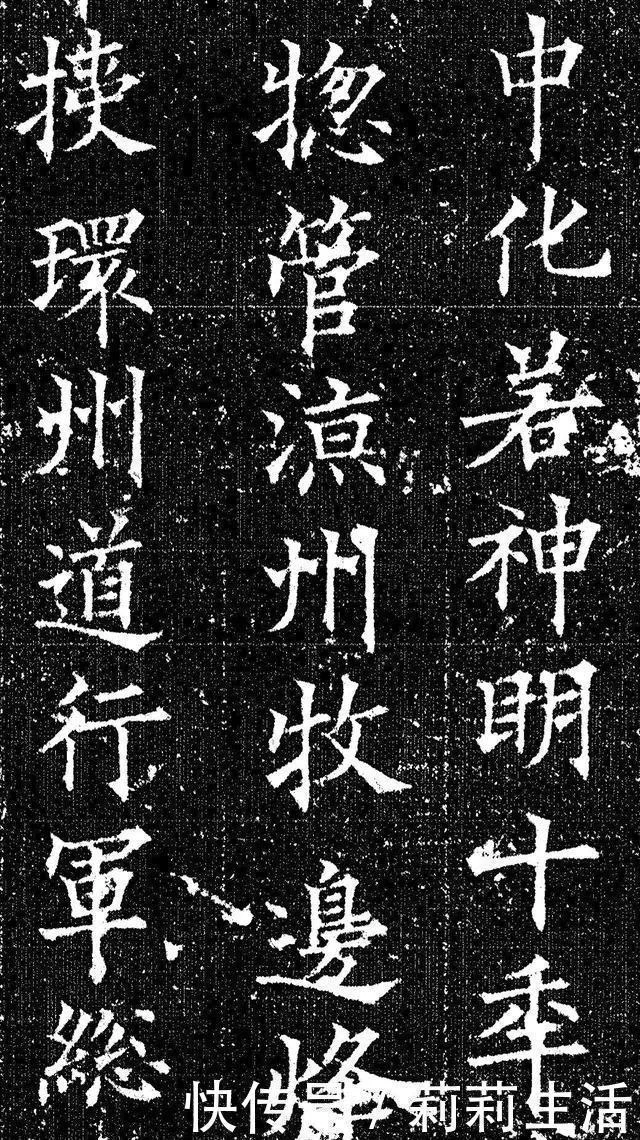 中化若神明十年
惣管涼州牧邊烽
挾環州道行軍総
快传号 / 莉莉生活